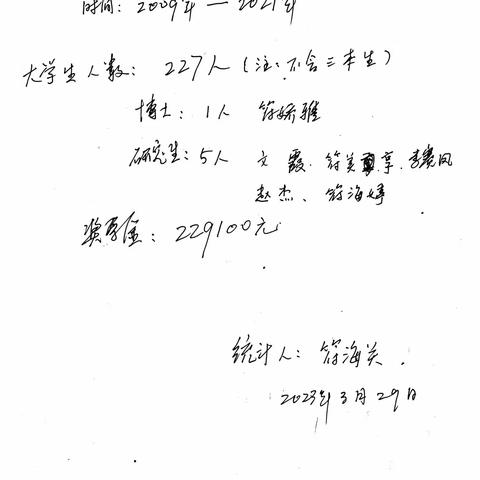 时间：2009年—2021年
大学生人数：227人（注：不含三本生）
博士：1人 符娇雅
研究生：5人 文霞、符美享、李赛凤
赵杰、符海婷
奖学金：229100元
统计人：符海关.
2023年3月29日